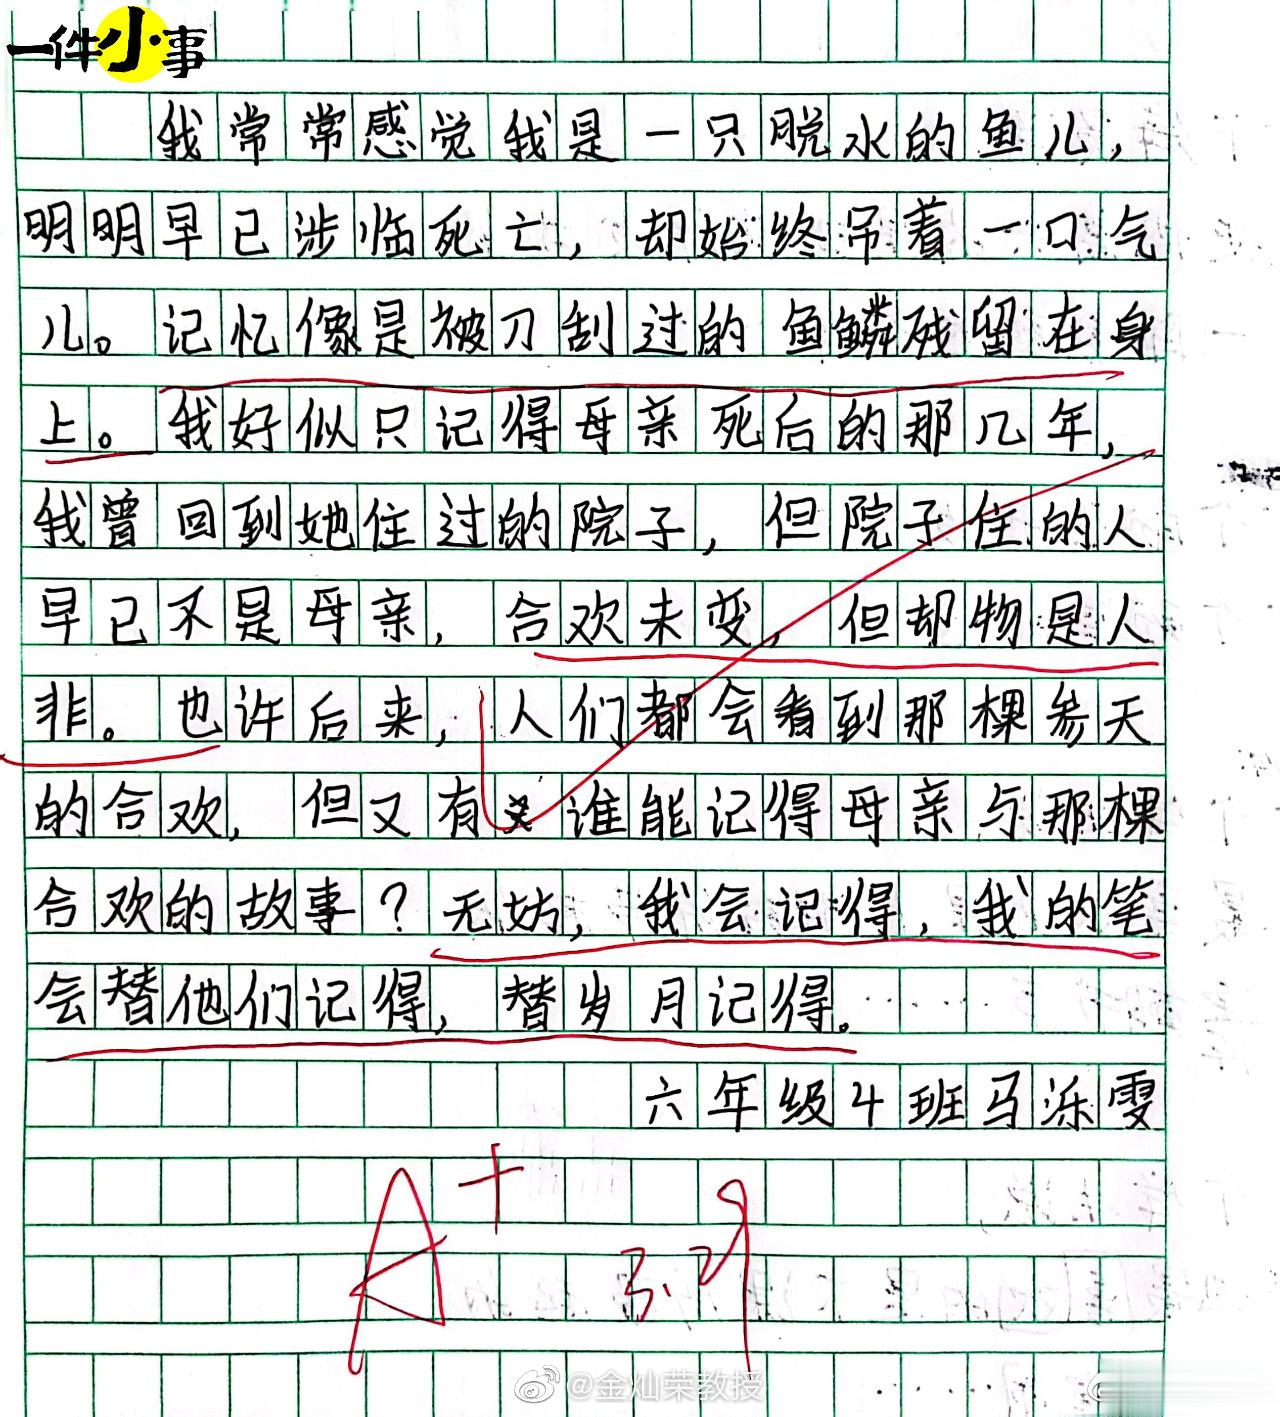 一件小事
我常常感觉我是一只脱水的鱼儿，
明明早已涉临死亡，却始终吊着一口气
儿。记忆像是被刀刮过的鱼鳞残留在身
上。我好似只记得母亲死后的那几年，
我曾回到她住过的院子，但院子住的人
早已不是母亲，合欢未变，但却物是人
非。也许后来，人们都会看到那棵参天
的合欢，但又有谁能记得母亲与那棵
合欢的故事？无妨，我会记得，我的笔
会替他们记得，替岁月记得。
六年级4班马泺雯
A+
3.29
@金灿荣教授